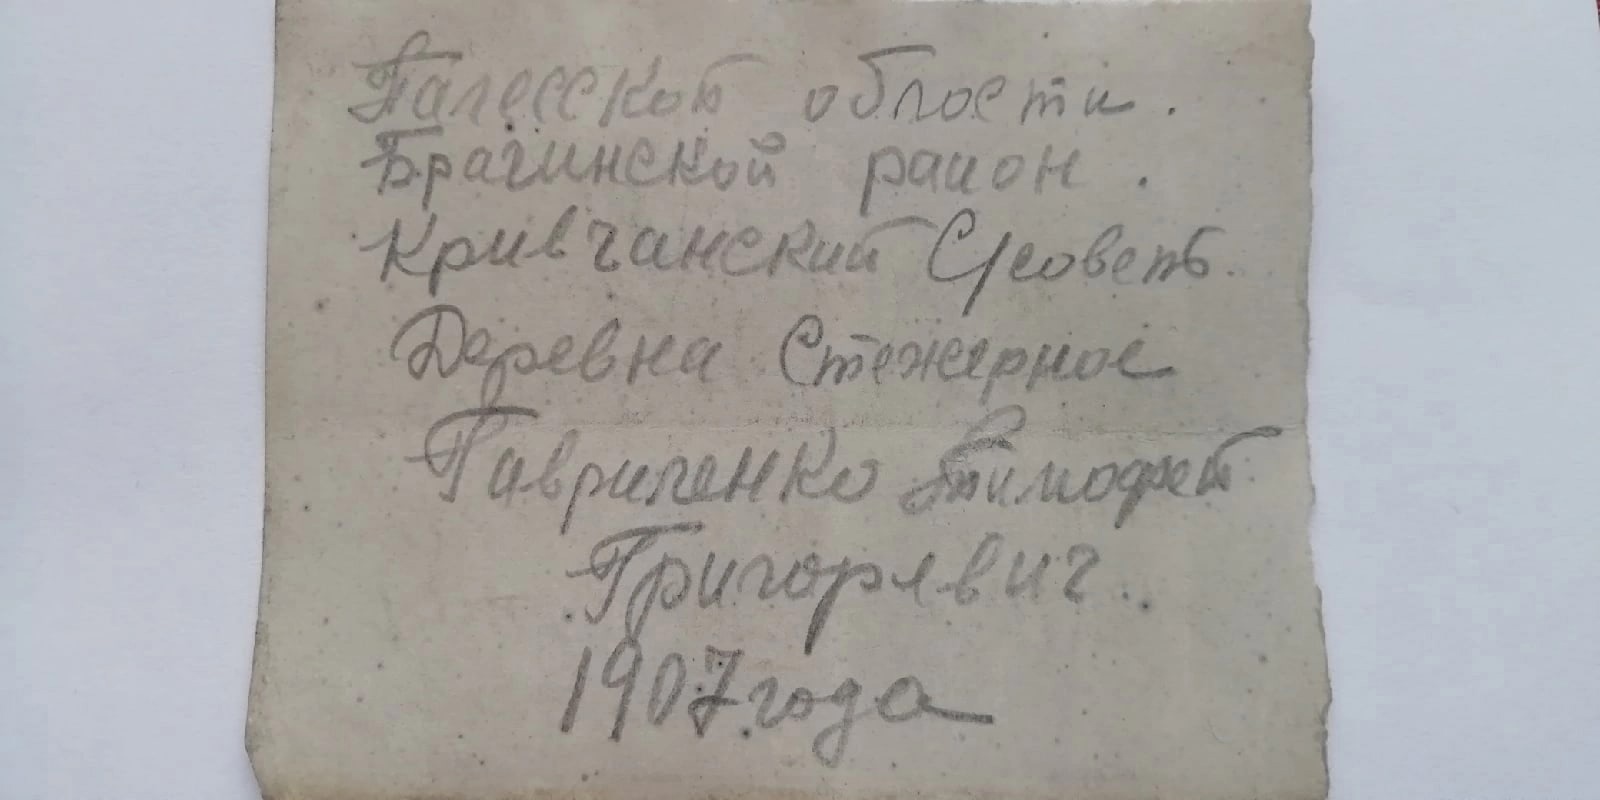 Палесской области.
Брагинской район.
Кривчанский С/советъ.
Деревна Стежерное
Гавриленко Тимофей
Григорявич.
1907 года